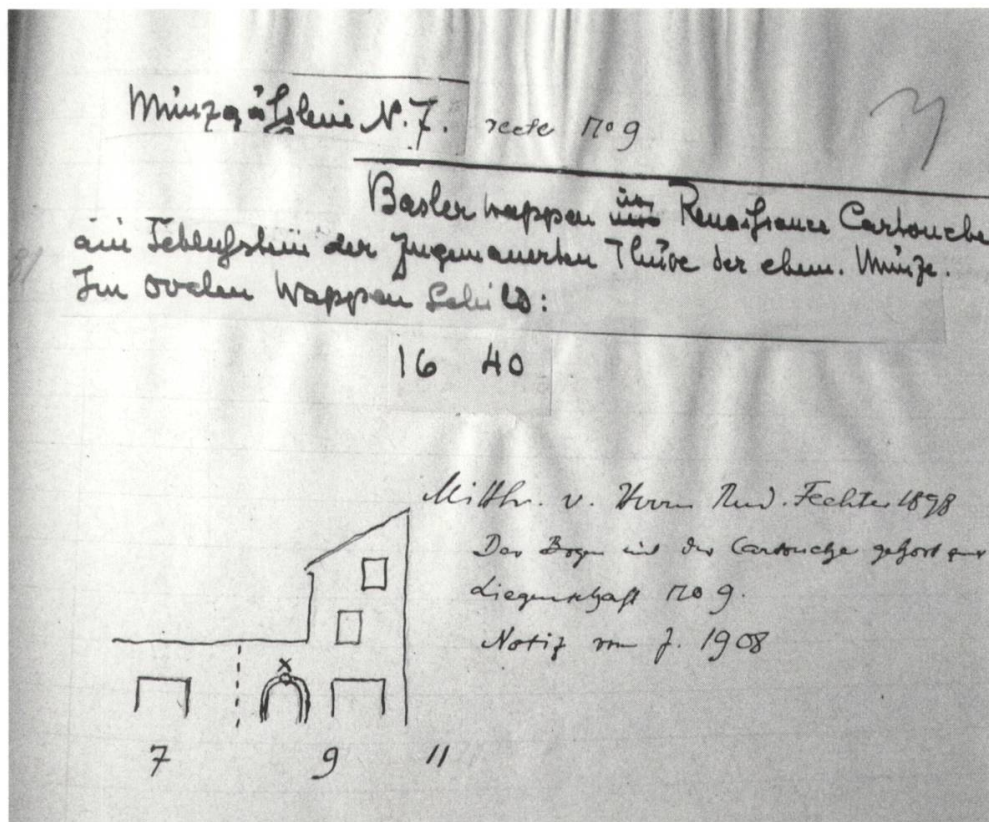 Münzgässlein N. 7. recte No 9
Basler Wappen in Renaissance Cartouche
am Schlussstein der zugemauerten Thüre der ehem. Münze.
Im ovalen Wappen Schild:
16 40
Mitthr. v. Herrn Rud. Fechter 1898
Der Bogen mit der Cartouche gehört zur
Liegenschaft No 9.
Notiz vom J. 1908
x
7 9 11